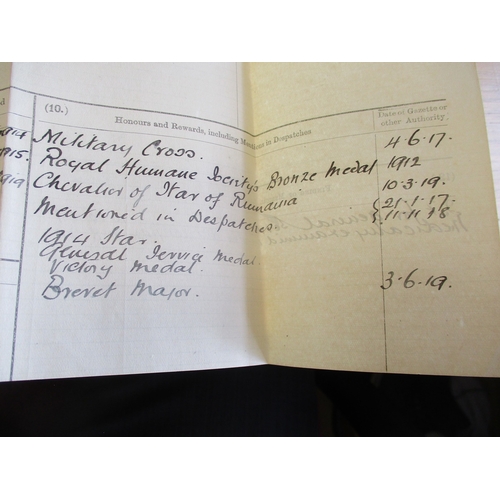 (10.)
Honours and Rewards, including Mentions in Despatches
Date of Gazette or
other Authority.
1914
Military Cross. 4.6.17.
1915.
Royal Humane Society's Bronze Medal 1912
1919
Chevalier of Star of Rumania 10.3.19.
Mentioned in Despatches {21.1.17.
{11.11.18
1914 Star.
General Service Medal
Victory Medal.
Brevet Major. 3.6.19.